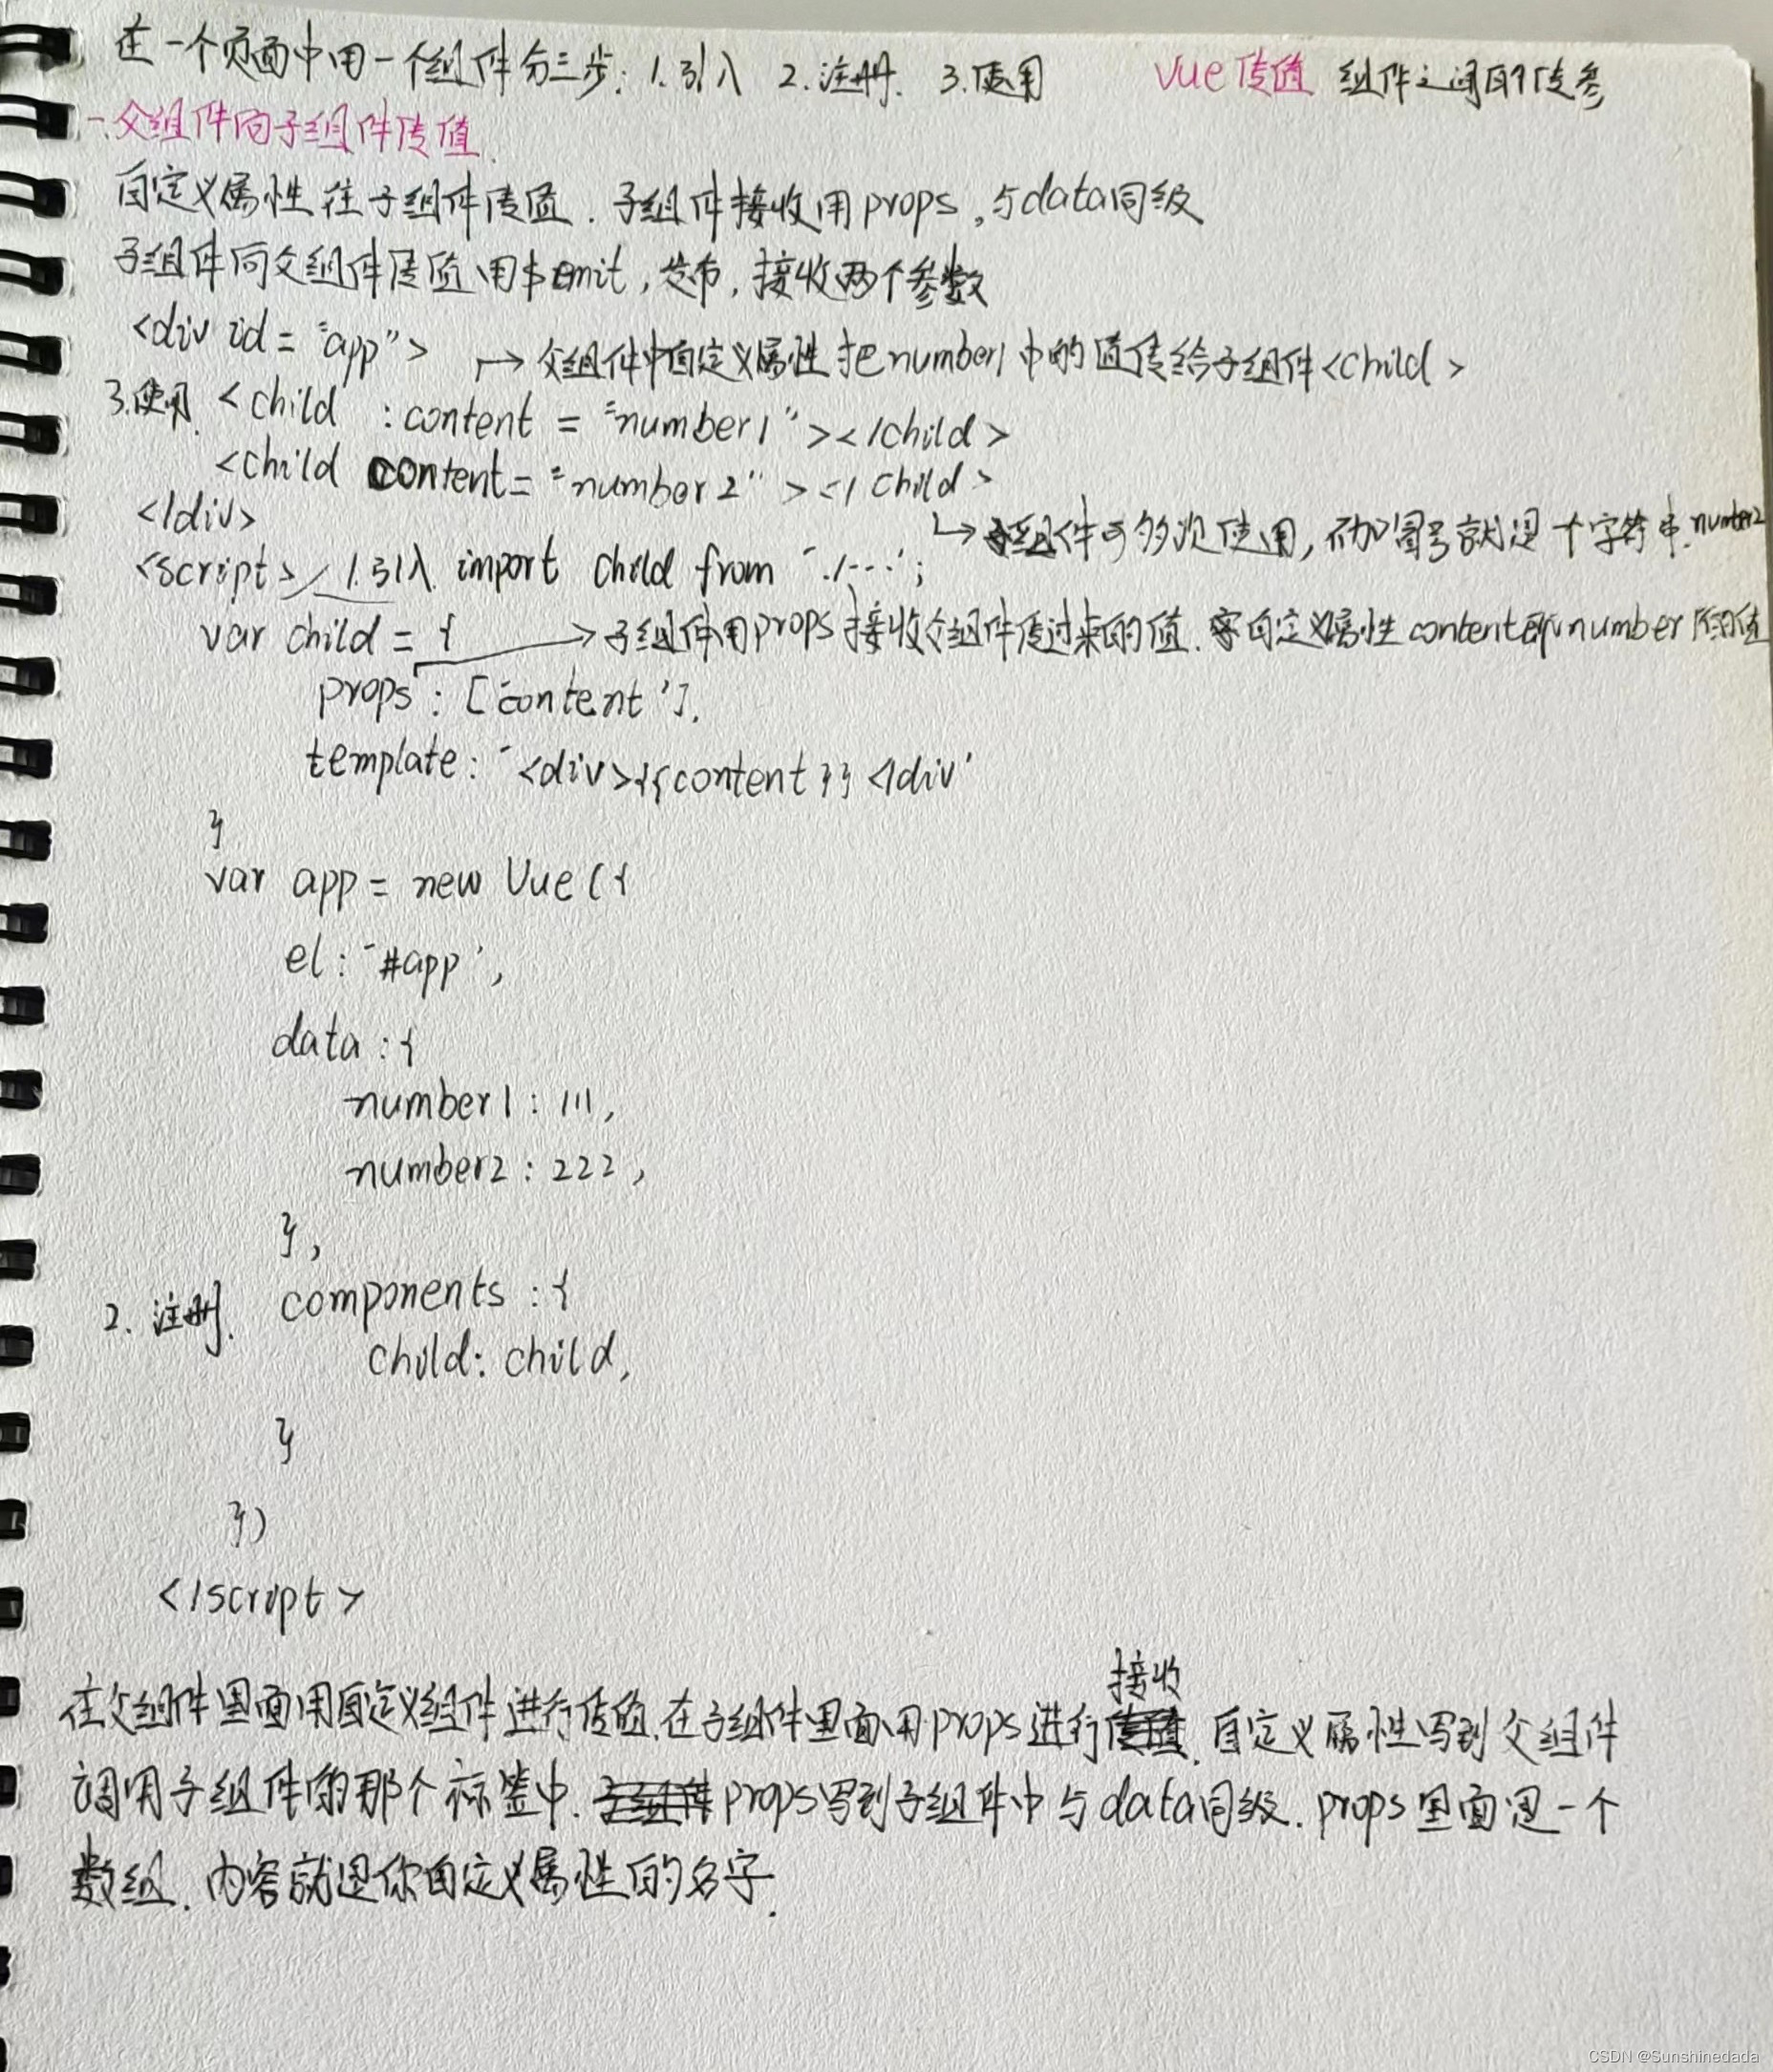 在一个页面中用一个组件分三步: 1.引入 2.注册. 3.使用 Vue传值 组件之间的传参
一.父组件向子组件传值.
自定义属性往子组件传值. 子组件接收用props,与data同级
子组件向父组件传值用$emit,发布,接收两个参数
<div id="app"> → 父组件中自定义属性把number1中的值传给子组件<child>
3.使用. <child :content="number1"></child>
<child content="number2"></child>
</div> → 子组件可多次使用,不加冒号就是个字符串.number2
<script> 1.引入 import child from './...';
var child = { → 子组件用props接收父组件传过来的值. 自定义属性content即number的值
props: ['content'],
template: '<div>{{content}}</div'
}
var app = new Vue({
el: '#app',
data:{
number1: 111,
number2: 222,
},
2. 注册. components:{
child: child,
}
})
</script>
接收
在父组件里面用自定义组件进行传值.在子组件里面用props进行传值. 自定义属性写到父组件
调用子组件的那个标签中. 子组件props写到子组件中与data同级. props里面是一个
数组. 内容就是你自定义属性的名字.
CSDN @Sunshinedada